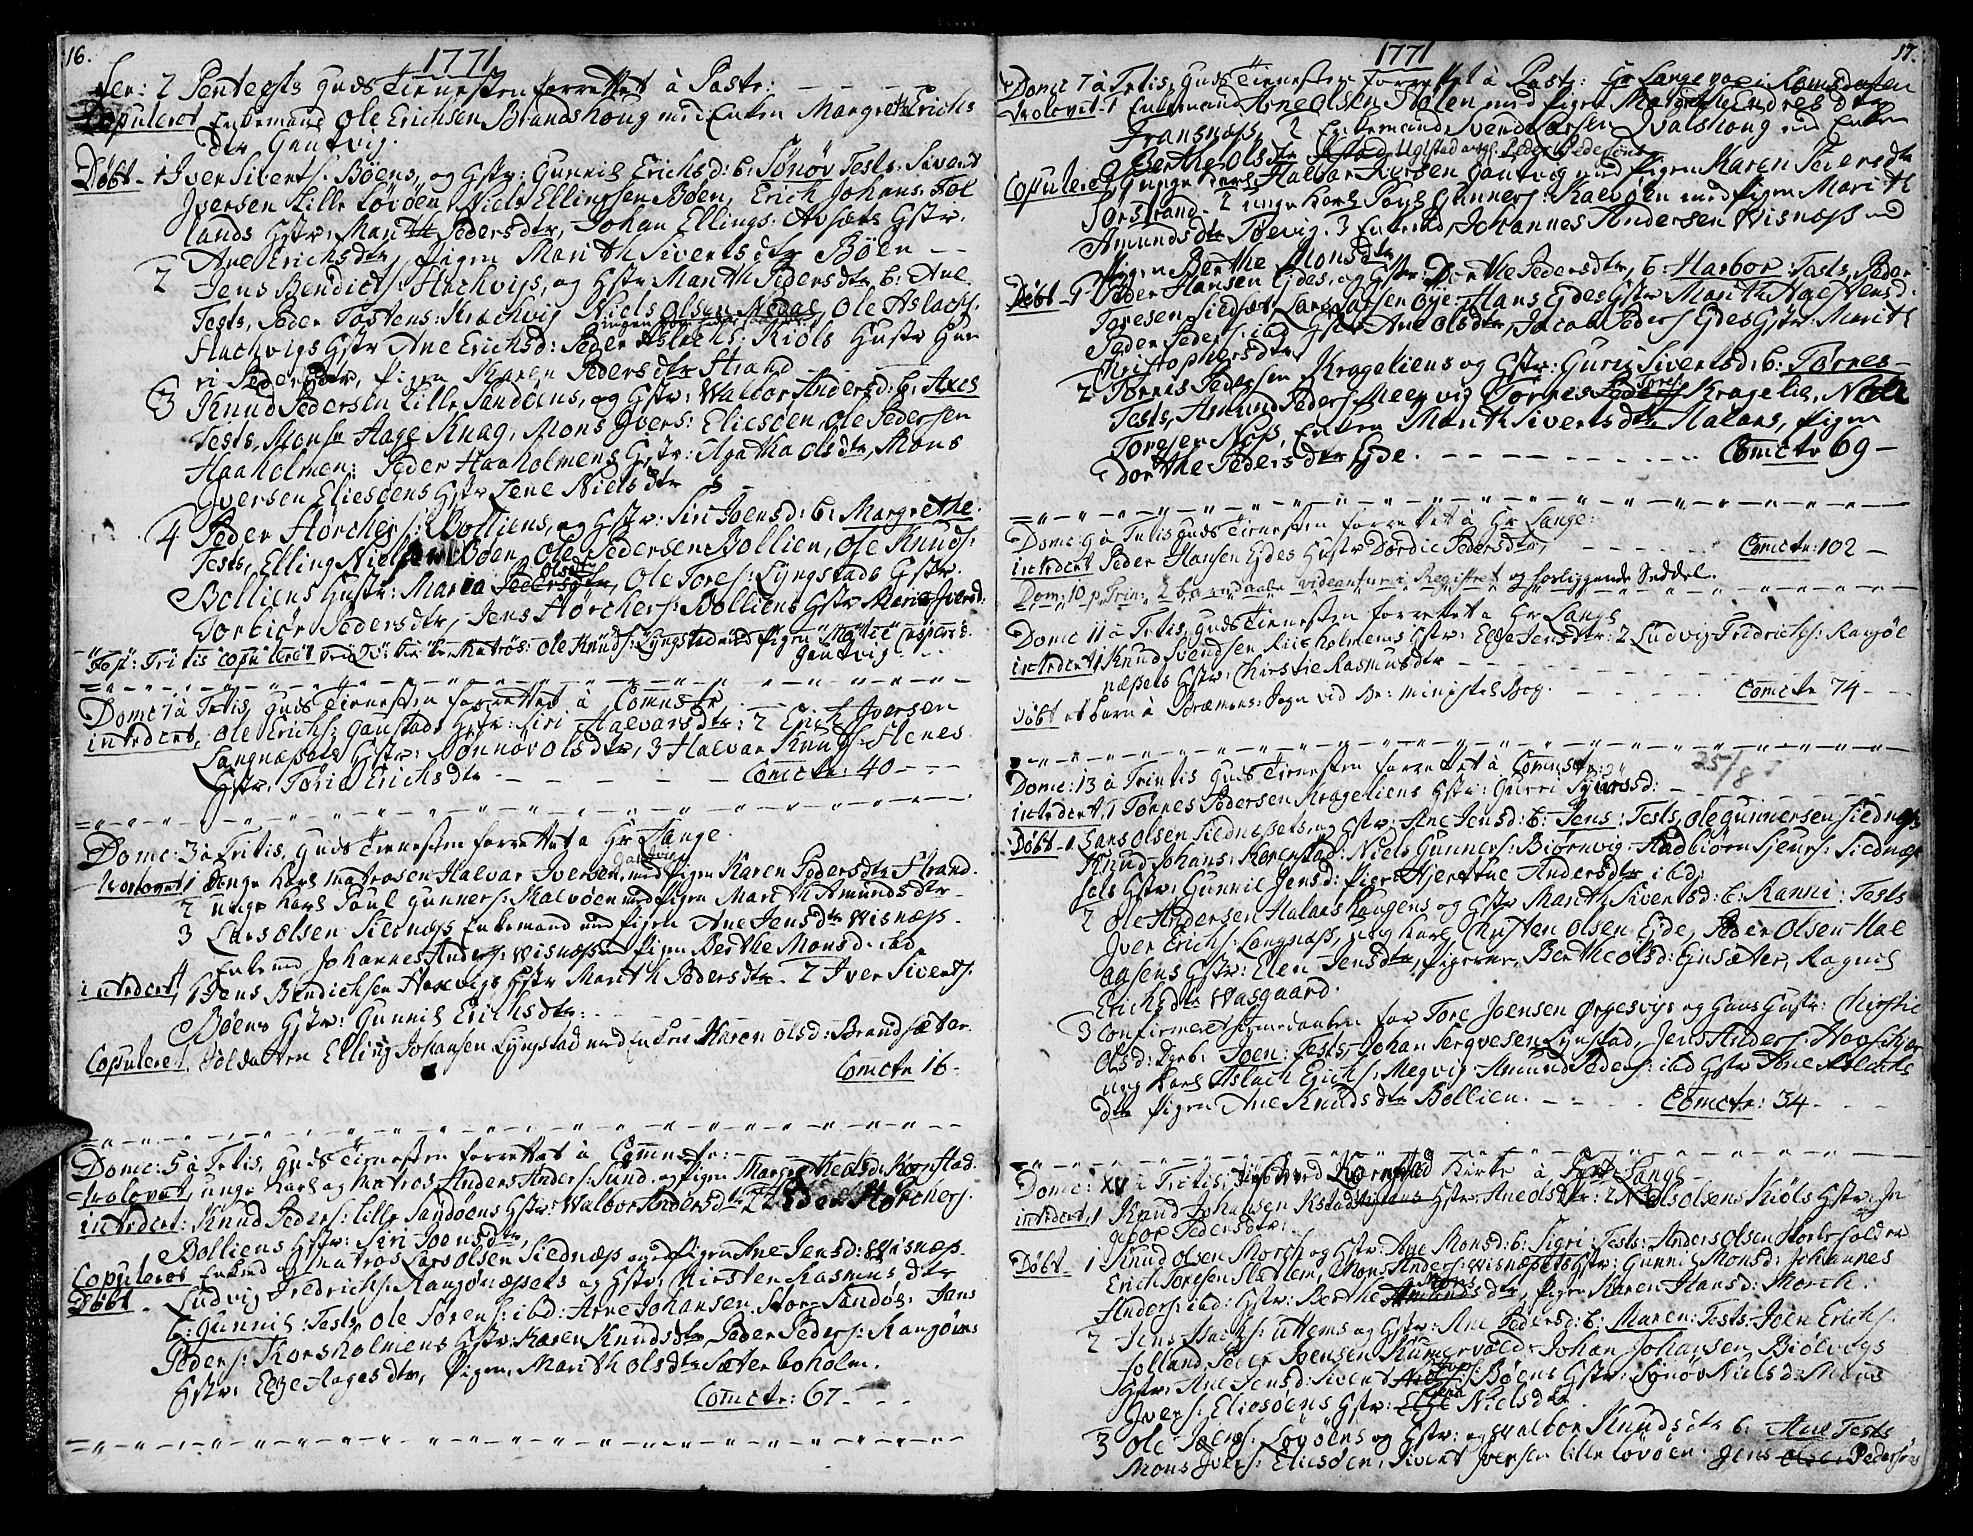 16.
1771
Fer: 2 Pentecsts Guds Tienesten forrettet à Past: - - - -
Copuleret Enkemand Ole Erichsen Brandshoug med Enken Margreth Erichs
dtr Gautvig.
Døbt - 1 Iver Siverts: Bøens, og Hstr: Gunnil Erichsd: b: Sønøv Tests. Sivert
Iversen Lille Løvøen, Niels Ellingsen Bøen, Erich Johans:
lands Hstr: Marith Pedersdtr, Johan Ellings: Hstr.
Ane Erichsdtr, Pigen Marith Sivertsdtr Bøen - -
2 Jens Bendicts: Hachvigs, og Hstr: Marith Pedersdtr b: Ane
Tests, Peder Tostens: Hachvig Niels Olsen, Ole Aslachs:
Hachvigs Hstr Ane Erichsd: Peder Aslachs: Kiøls Hustr Gun
ri Pedersdtr, Pigen Karen Pedersdtr Strand
3 Knud Pedersen Lille Sandøens, og Hstr: Walbor Andersd: b: Axes
Tests, Monsr Aage Knag, Mons Ivers: Eliesøen, Ole Pedersen
Haaholmen: Peder Haaholmens Hstr: Agatha Olsdtr, Mons
Iversen Eliesøens Hstr Lene Nielsdtr - -
4 Peder Størchers: Bolliens, og Hstr: Siri Joensd: b: Margrethe.
Tests, Elling Nielsen Bøen, Ole Pedersen Bollien, Ole Knuds:
Bolliens Hustr: Maria Olsdtr, Ole Tores: Lyngstads Hstr.
Torbiør Pedersdtr, Jens Størchers: Bolliens Hstr Maria Iversd:
Fest: Tritis Copuleret Matros: Ole Knuds: Lyngstad med Pigen
Gautvig.
Domc 1 à Tritis, Guds Tienesten forrettet à Comnstr
introdert, Ole Erichs: Gaustads Hstr: Siri Halvarsdtr: 2 Erich Iversen
Langnæssets Hstr: Sønnøv Olsdtr, 3 Halvar Knuds: Henes
Hstr, Tori Erichsdtr - - - - Comctr: 40 - - -
Domc: 3 à Tritis, Guds Tienesten forrettet à Hr Lange.
Trolovet, 1 Unge Karl matrosen Halvar Iversen Gautvig, med Pigen Karen Pedersdtr Strand.
2 unge Karl Poul Gunners: Kalvøen med Pigen Marith Amundsdtr -
3 Lars Olsen Siednæss Enkemand med Pigen Ane Jensdtr Wisnæss -
4 Enkemd Johannes Anders: Wisnæss med Pigen Berthe Monsd: ibd.
introdert, 1 Jens Bendichsen Hacvigs Hstr Marith Pedersdtr - 2 Iver Siverts:
Bøens Hstr: Gunnil Erichsdtr: - - -
Copuleret Soldatten Elling Johansen Lyngstad med Enken Karen Olsd: Brandsæter
Comctr 16 -
Domc: 5 à Tritis, Guds Tienesten forrettet à Comnstr: - - -
Trolovet, unge Karl og Matros Anders Anders: Sund og Pigen Margrethe Olsd: Kornstad.
introdert: Knud Peders: Lille Sandøens Hstr: Walbor Andersdtr 2 Peder Størchers:
Bolliens Hstr: Siri Joensdtr,
Copuleret Enkmd og Matros Lars Olsen Siednæss med Pigen Ane Jensd: Wisnæss -
Døbt - Ludvig Fredrichs: Rangønæssets og Hstr: Kirsten Rasmusdtr
b: Gunnil: Tests, Ole Sørens: ibd: Arne Johansen Stor Sandøe: Jens
Peders: Korsholmens Hstr: Karen Knudsdtr, Peder Peders: Rangøens
Hstr: Else Aagesdtr, Pigen, Marith Olsdtr Sæterboholm.
Comctr: 67 - - -
1771
17.
Domc 7 à Tritis, Guds Tienesten forrettet à Past: Hr Lange var i Romsdalen
Trolovet - 1 Enkemand Arne Olsen Stolen med Pigen Margrethe Endresdtr
Fransnæss, 2 Enkemand Svend Larsen Qvalshoug med Enken
Berthe Olsdtr Uglstad Peder Pedersens
Copuleret, Unge Karl Halvar Iversen Gautvig med Pigen Karen Pedersdtr
Sørstrand - 2 unge Karl Povl Gunners: Kalvøen med Pigen Marith
Amundsdtr Tøevig. 3 Enkemd, Johannes Andersen Wisnæss med
Pigen Berthe Monsdtr
Døbt - 1 Peder Hansen Eides, og Hstr: Dorthe Pedersdtr, b: Harbor: Tests, Peder
Toresen Siedsæt Lars Larsen Øye - Hans Eides Hstr Marith Halstensd:
Peder Peders: ibd Hstr Ane Olsdtr, Jacob Peders Eides Hstr: Marith
Kristophersdtr
2 Tørris Pedersen Krogeliens og Hstr: Guri Sivertsd: b: Tørres -
Tests, Amund Peders: Meegvig Tørres Tores: Krogelie, Niels
Toresen Næss, Enken Marith Sivertsdtr Halaas, Pigen
Dorthe Pedersdtr Eide. - - - - - Comctr 69 -
Domc: 9 à Tritis Guds Tienesten forrettet à Hr Lange:
introdert Peder Hansen Eides Hstr Dordie Pedersdtr, - - - - Comctr: 102 -
Dom: 10 p. Trin: 2 barnedaabe videantur i Registret og forliggende Seddel.
Domc 11 à Tritis, Guds Tienesten forrettet à Hr Lange
introdert 1 Knud Svendsen Risholmens Hstr: Else Jensdtr: 2 Ludvig Fredrichs: Rangøe
næssets Hstr: Chirstie Rasmusdtr - - - -
Døbt et barn à Bræmsnes: Sogn vid Be: ministel Bog. - - - Comctr 74 -
Domc: 13 à Trintis Guds Tienesten forrettet à Comnstr: 25/8
introdert, 1 Tørres Pedersen Krogeliens Hstr: Gurri Syversd: - - -
Døbt - 1 Lars Olsen Siednæssets, og Hstr: Ane Jensd: b: Jens: Tests, Ole Gunnersen Siednæs
Knud Johans: Kornstad: Niels Gunners: Biørnvig - Hadbiørn Sjurs: Siednæs
sets Hstr: Gunnil Jensd: Pigen Hjertrue Andersdtr ibd:
2 Ole Andersen Halaas Haugens og Hstr Marith Sivertsd: b: Ranni: Tests
Iver Erichs: Langnæss, ung Karl Christen Olsen Eide, Peder Olsen Hal
aasens Hstr: Elen Jensdtr, Pigerne, Berthe Olsd: Ensæter, Ragnil
Erichsdtr Wasgaard.
3 Confirmeret hjemedaaben for Tore Joensen Ørgesvigs og Hans Hustr: Chirstie
Olsd: Dyrb: Joen: Tests, Johan Lyngstad, Jens Anders: Hovs
ung Karl Aslach Erichs: Megvig - Amund Peders: ibd Hstr Ane
dtr Pigen Ane Knudsdtr Bollien. - - - Comctr: 34 - -
Domc: XV à Tritis, Tienesten ved Kornstad Kirke à Hr Lange -
introdert, 1 Knud Johansen Kstad Hstr: Ane Olsdtr: 2 Niels Olsens Kiøls Hstr: In
gebor Pedersdtr:
Døbt - 1 Knud Olsen Morch og Hstr: Ane Monsd: b: Sigri: Tests: Anders Olsen Storfolden
Erich Toresen Hadlem, Mons Anders: Wisnæssets Hstr: Gunnil Monsd: Johannes
Anders: ibd: Hstr: Berthe Monsdtr, Pigen Karen Hansd: Morch.
2 Jens Isachs: Uttems og Hstr: Ane Pedersd: b: Maren: Tests - Joen Erichs:
Folland, Peder Joensen Kumervold - Johan Johansen Biølvogs
Hstr: Ane Jensd: Sivert Ivers: Bøens Hstr: Synøv Nielsd: Mons
Ivers: Eliesøens Hstr: Lena Nielsdtr.
3 Ole Joens: Løvøens og Hstr: Walbor Knudsdtr b: Ane Tests
Mons Ivers: Eliesøen, Sivert Iversen lille Løvøen. Jens Pedersøns